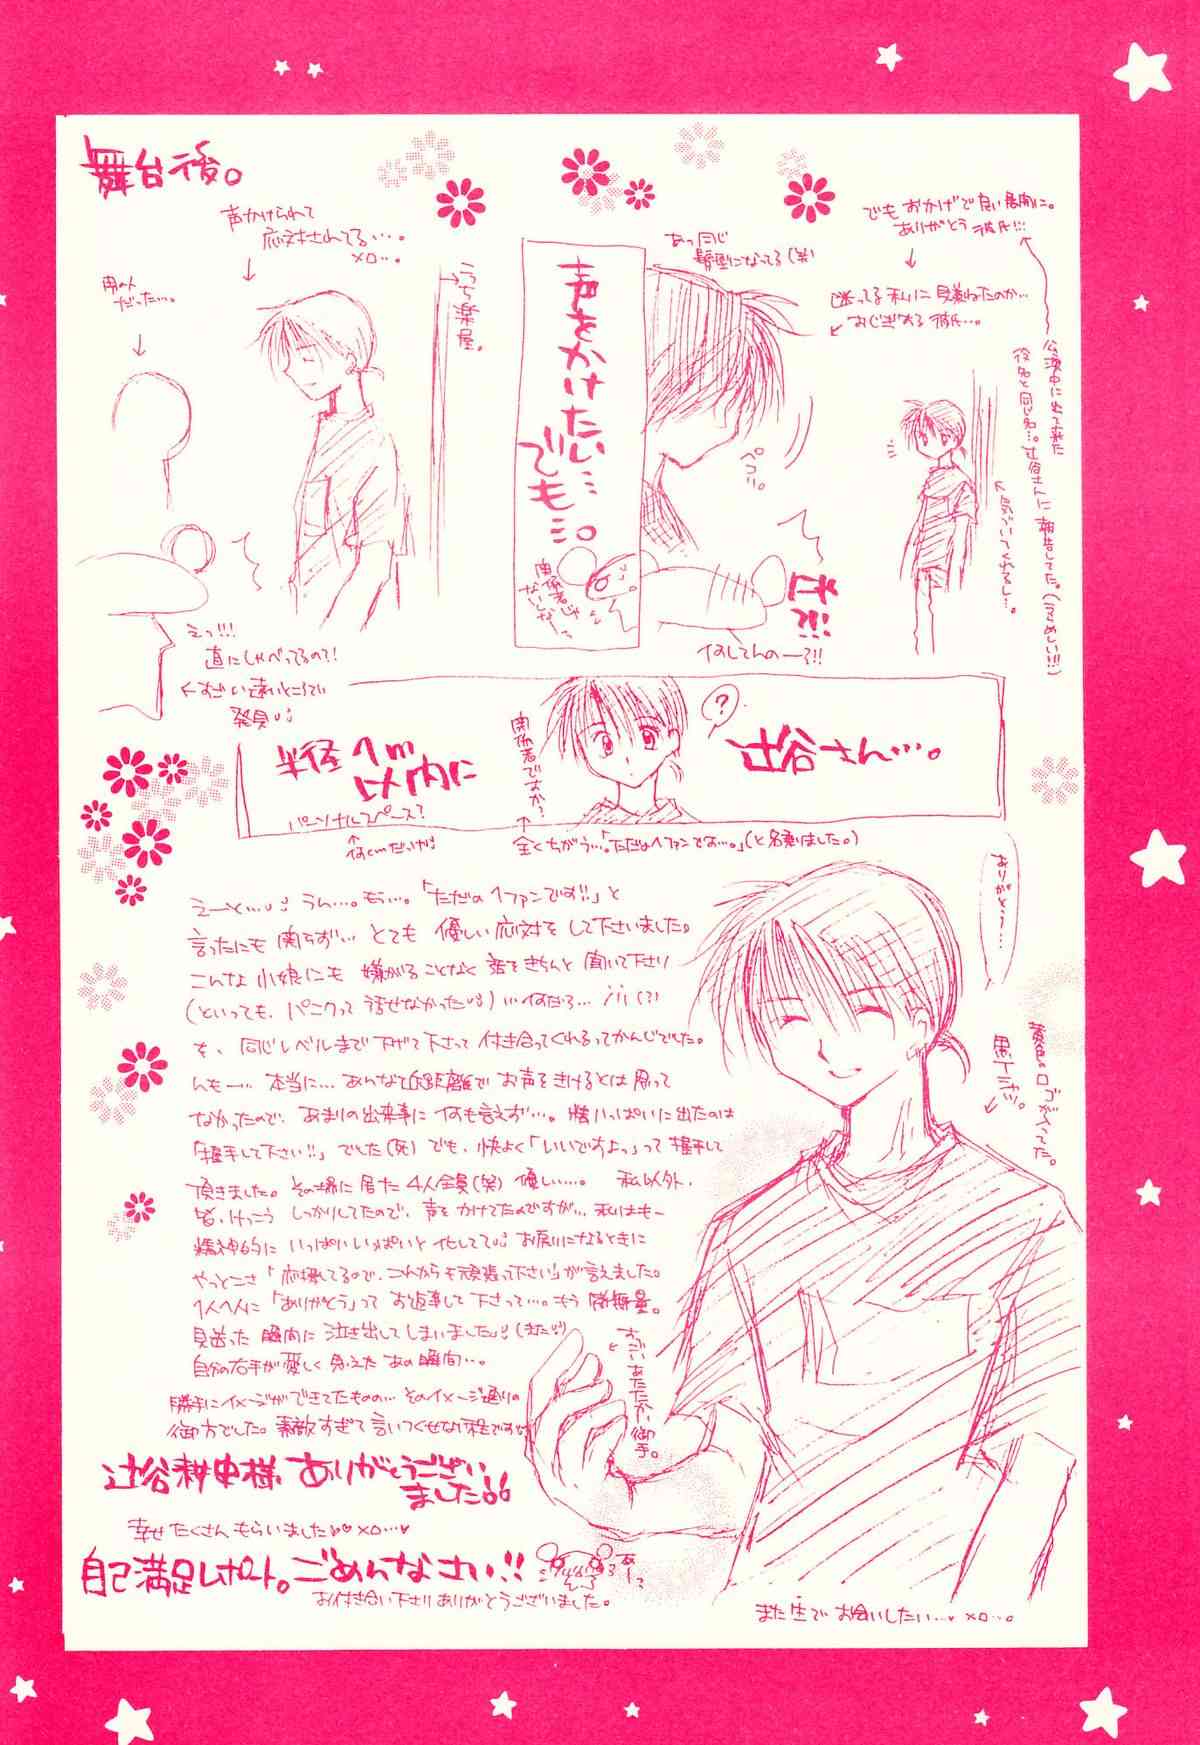 舞台後。
でも おかげで 良い展開に。
ありがとう 彼氏!!!
迷ってる 私に 見兼ねたのか…
おじぎする 彼氏…。
公演中に出て来た
役名と同じ名…。辻谷さんに 報告してた。
気づいてくれるし…。
あっ 同じ
髪型になってる(笑)
ペコリ。
何してんのー?!!
声をかけたい…
でも…。
うち楽屋。
声かけられて
応対されてる…。
男の人
だった…。
えっ!!!
直にしゃべってるの?!
すごい遠いところで
発見
半径1m
以内に
辻谷さん…。
?
関係者ですか?
パーソナルスペース?
何cmだっけ
全くちがう…。「ただの1ファンです…。」(と名乗りました。)
えーと…。うん…。もう…。「ただの1ファンです!!」と
言ったにも関らず… とても 優しい応対をして下さいました。
こんな 小娘にも 嫌がることなく 話をきちんと 聞いて下さり
(といっても、パニクって 話せなかった) …何だろ…
を、同じレベルまで 下げて下さって 付き合ってくれるってかんじでした。
んもー… 本当に… あんな近距離で お声をきけるとは 思って
なかったので、あまりの出来事に 何も言えず…。精いっぱいに出たのは
「握手して下さい!!」でした(死) でも、快よく「いいですよっ」って 握手して
頂きました。その場に居た 4人全員(笑) 優しい…。 私以外、
皆、けっこう しっかりしてたので、声を かけてたのですが… 私はもー
精神的に いっぱいいっぱいと 化してて お戻りになるときに
やっとこさ「応援してるので、これからも頑張って下さい」が言えました。
1人1人に「ありがとう」って お返事して 下さって…。もう 感無量。
見送った 瞬間に 泣き出してしまいました
自分の右手が愛しく 見えた あの瞬間…。
勝手にイメージができてたものの… そのイメージ通りの
御方でした。素敵すぎて 言いつくせない程です
辻谷耕史様、ありがとうござい
ました
幸せ たくさん もらいました
自己満足レポート。ごめんなさい!!
お付き合い下さり ありがとうございました。
ありがとう…
黄色のロゴが入ってた。
黒Tシャツ。
すごい あたたかい御手。
また 生で お会いしたい…